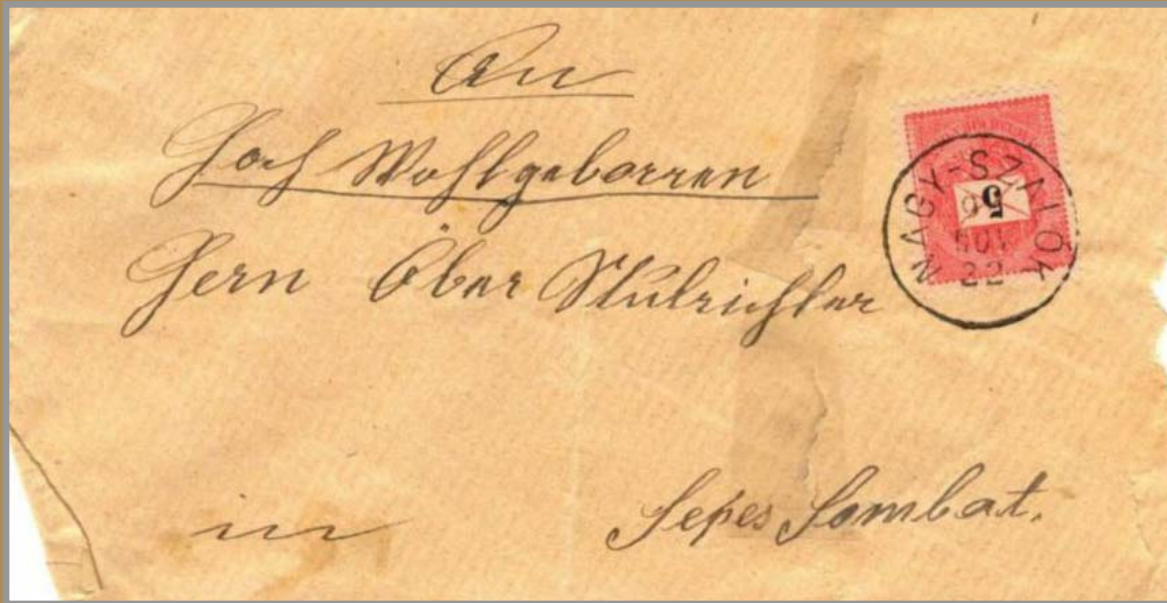 An
Hoch Wohlgeborren
Hern Ober Stulrichter
in Sepes Sombat.
NAGY-SZALÓK
NOV
22
5